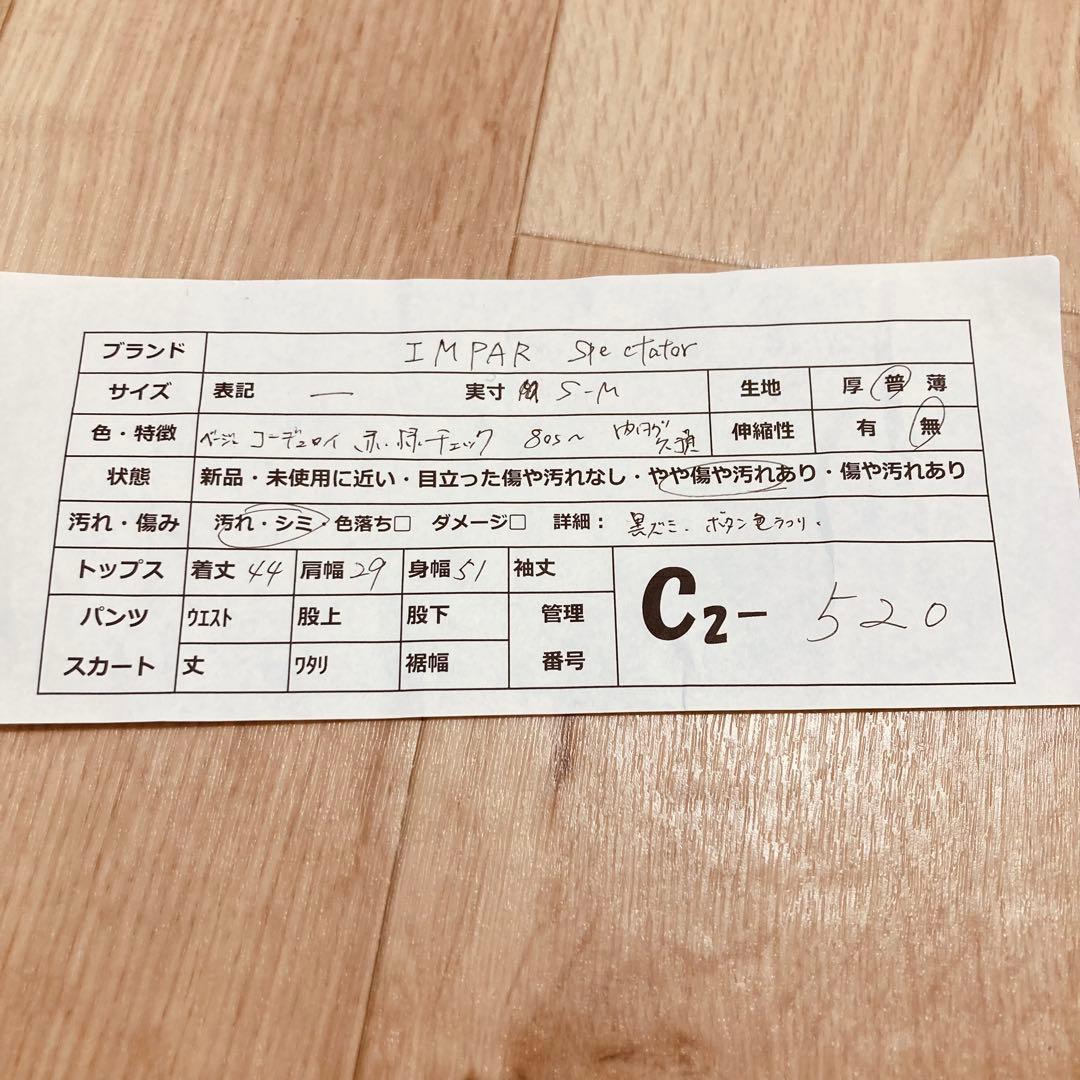 ブランド IMPAR Spectator
サイズ 表記 ー 実寸 S-M 生地 厚 普 薄
色・特徴 ベージュ コーデュロイ 赤.緑.チェック 80s～ 内タグ欠損 伸縮性 有 無
状態 新品・未使用に近い・目立った傷や汚れなし・やや傷や汚れあり・傷や汚れあり
汚れ・傷み 汚れ・シミ・色落ち□ ダメージ□ 詳細： 黒ズミ. ボタン色うつり.
トップス 着丈 44 肩幅 29 身幅 51 袖丈
パンツ ウエスト 股上 股下 管理 C2- 520
スカート 丈 ワタリ 裾幅 番号